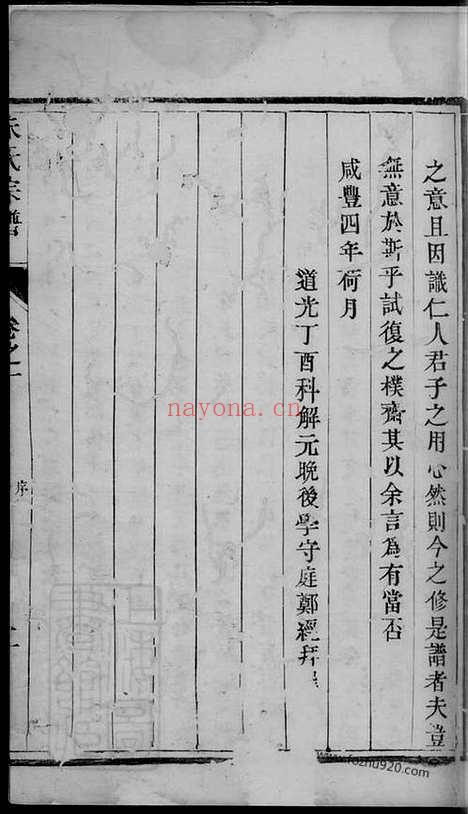 之意且因識仁人君子之用心然則今之修是譜者夫豈
無意於斯乎試復之樸齋其以余言為有當否
咸豐四年荷月
道光丁酉科解元晚後學守庭鄭經拜
氏宗譜
卷之一
序
nayona.cn
www.fozhu920.com